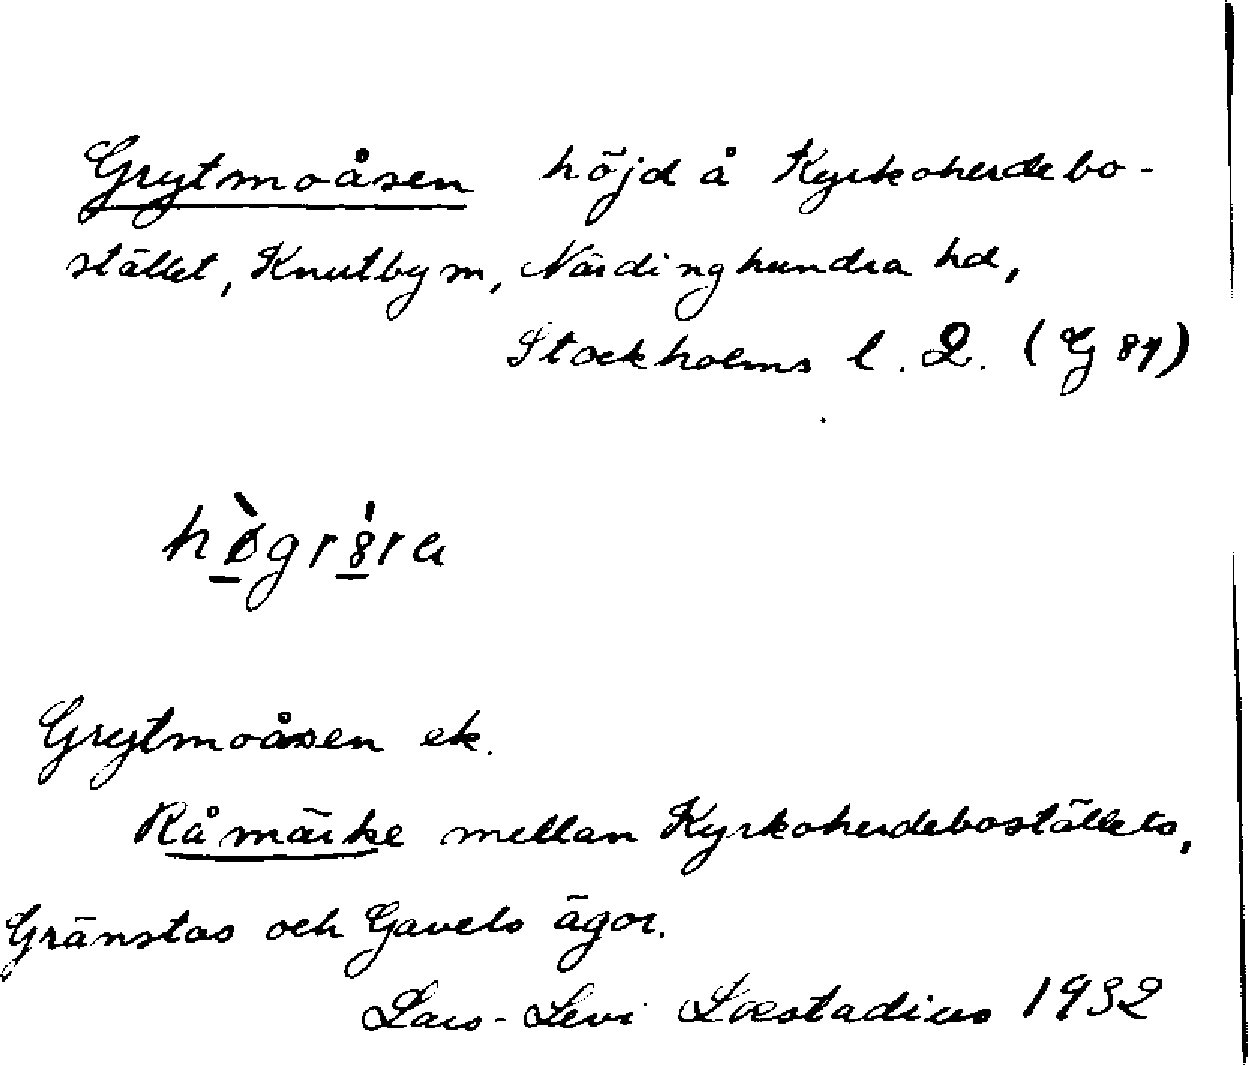 Grytmoåsen höjd å Kyrkoherdebo-
stället, Knutby sn, Närdinghundra hd,
Stockholms l. 2. (G 87)
Grytmoåsen ek.
Råmärke mellan Kyrkoherdeboställets,
Gränstas och Gavels ägor.
Lars-Levi Læstadius 1932